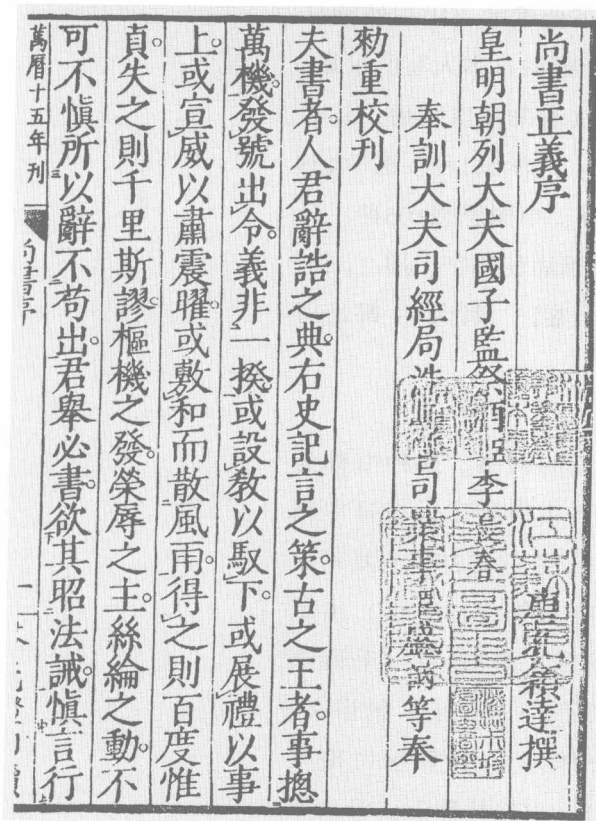 尚書正義序
唐孔穎達撰
皇明朝列大夫國子監祭酒臣李長春
奉訓大夫司經局洗 司業事臣盛訥等奉
勑重校刊
夫書者。人君辭誥之典。右史記言之策。古之王者。事摠
萬機。發號出令。義非一揆。或設教以馭下。或展禮以事
上。或宣威以肅震曜。或敷和而散風雨。得之則百度惟
貞。失之則千里斯謬。樞機之發。榮辱之主。絲綸之動。不
可不愼。所以辭不苟出。君舉必書。欲其昭法誡。愼言行
萬曆十五年刊
尚書序